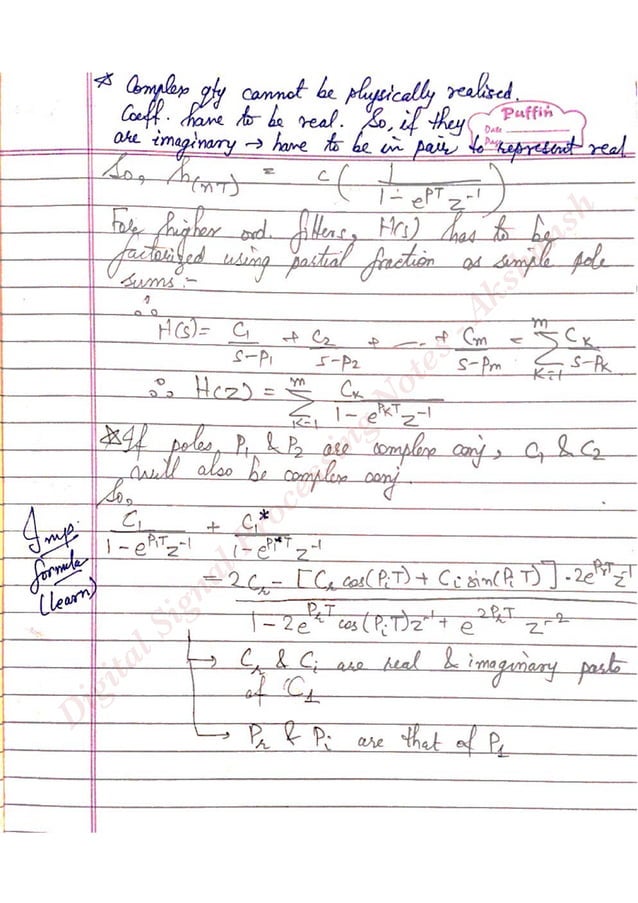 * Complex qty cannot be physically realised.
Coeff. have to be real. So, if they
are imaginary → have to be in pair to represent real
Puffin
Date
Page
So, h(nT) = c ( 1 / (1 - e^{PT} z^{-1}) )
For higher ord. filters, H(s) has to be
factorized using partial fraction as simple pole
sums :-
∴ H(s) = C1/(s-p1) + C2/(s-p2) + --- + Cm/(s-pm) = Σ_{K=1}^{m} CK/(s-pK)
∴ H(z) = Σ_{K=1}^{m} CK / (1 - e^{PKT} z^{-1})
* If poles P1 & P2 are complex conj, C1 & C2
will also be complex conj.
So,
Imp.
formula
(learn)
C1 / (1 - e^{P1T} z^{-1}) + C1* / (1 - e^{P1*T} z^{-1})
= 2Cr - [Cr cos(PiT) + Ci sin(PiT)] · 2e^{PrT} z^{-1} / (1 - 2e^{PrT} cos(PiT) z^{-1} + e^{2PrT} z^{-2})
→ Cr & Ci are real & imaginary parts
of C1
→ Pr & Pi are that of P1
Digital Signal Processing Notes - Akshansh